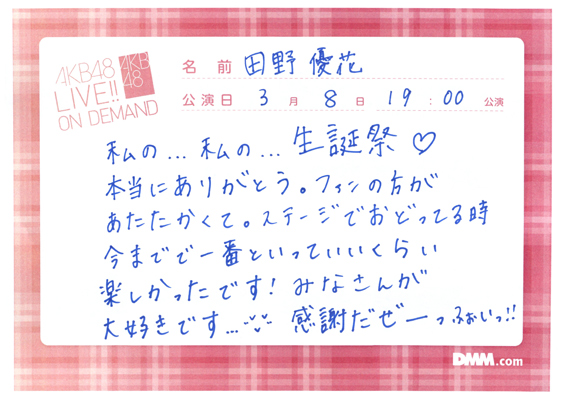 AKB48
LIVE!!
ON DEMAND
AKB
48
名前 田野優花
公演日 3月8日 19:00 公演
私の...私の...生誕祭♡
本当にありがとう。ファンの方が
あたたかくて。ステージでおどってる時
今までで一番といっていいくらい
楽しかったです! みなさんが
大好きです... 感謝だぜーっふぉいっ!!
DMM.com